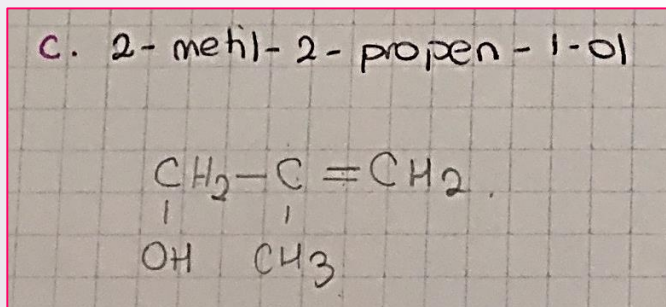 C. 2-metil-2-propen-1-ol
CH2-C=CH2.
OH CH3